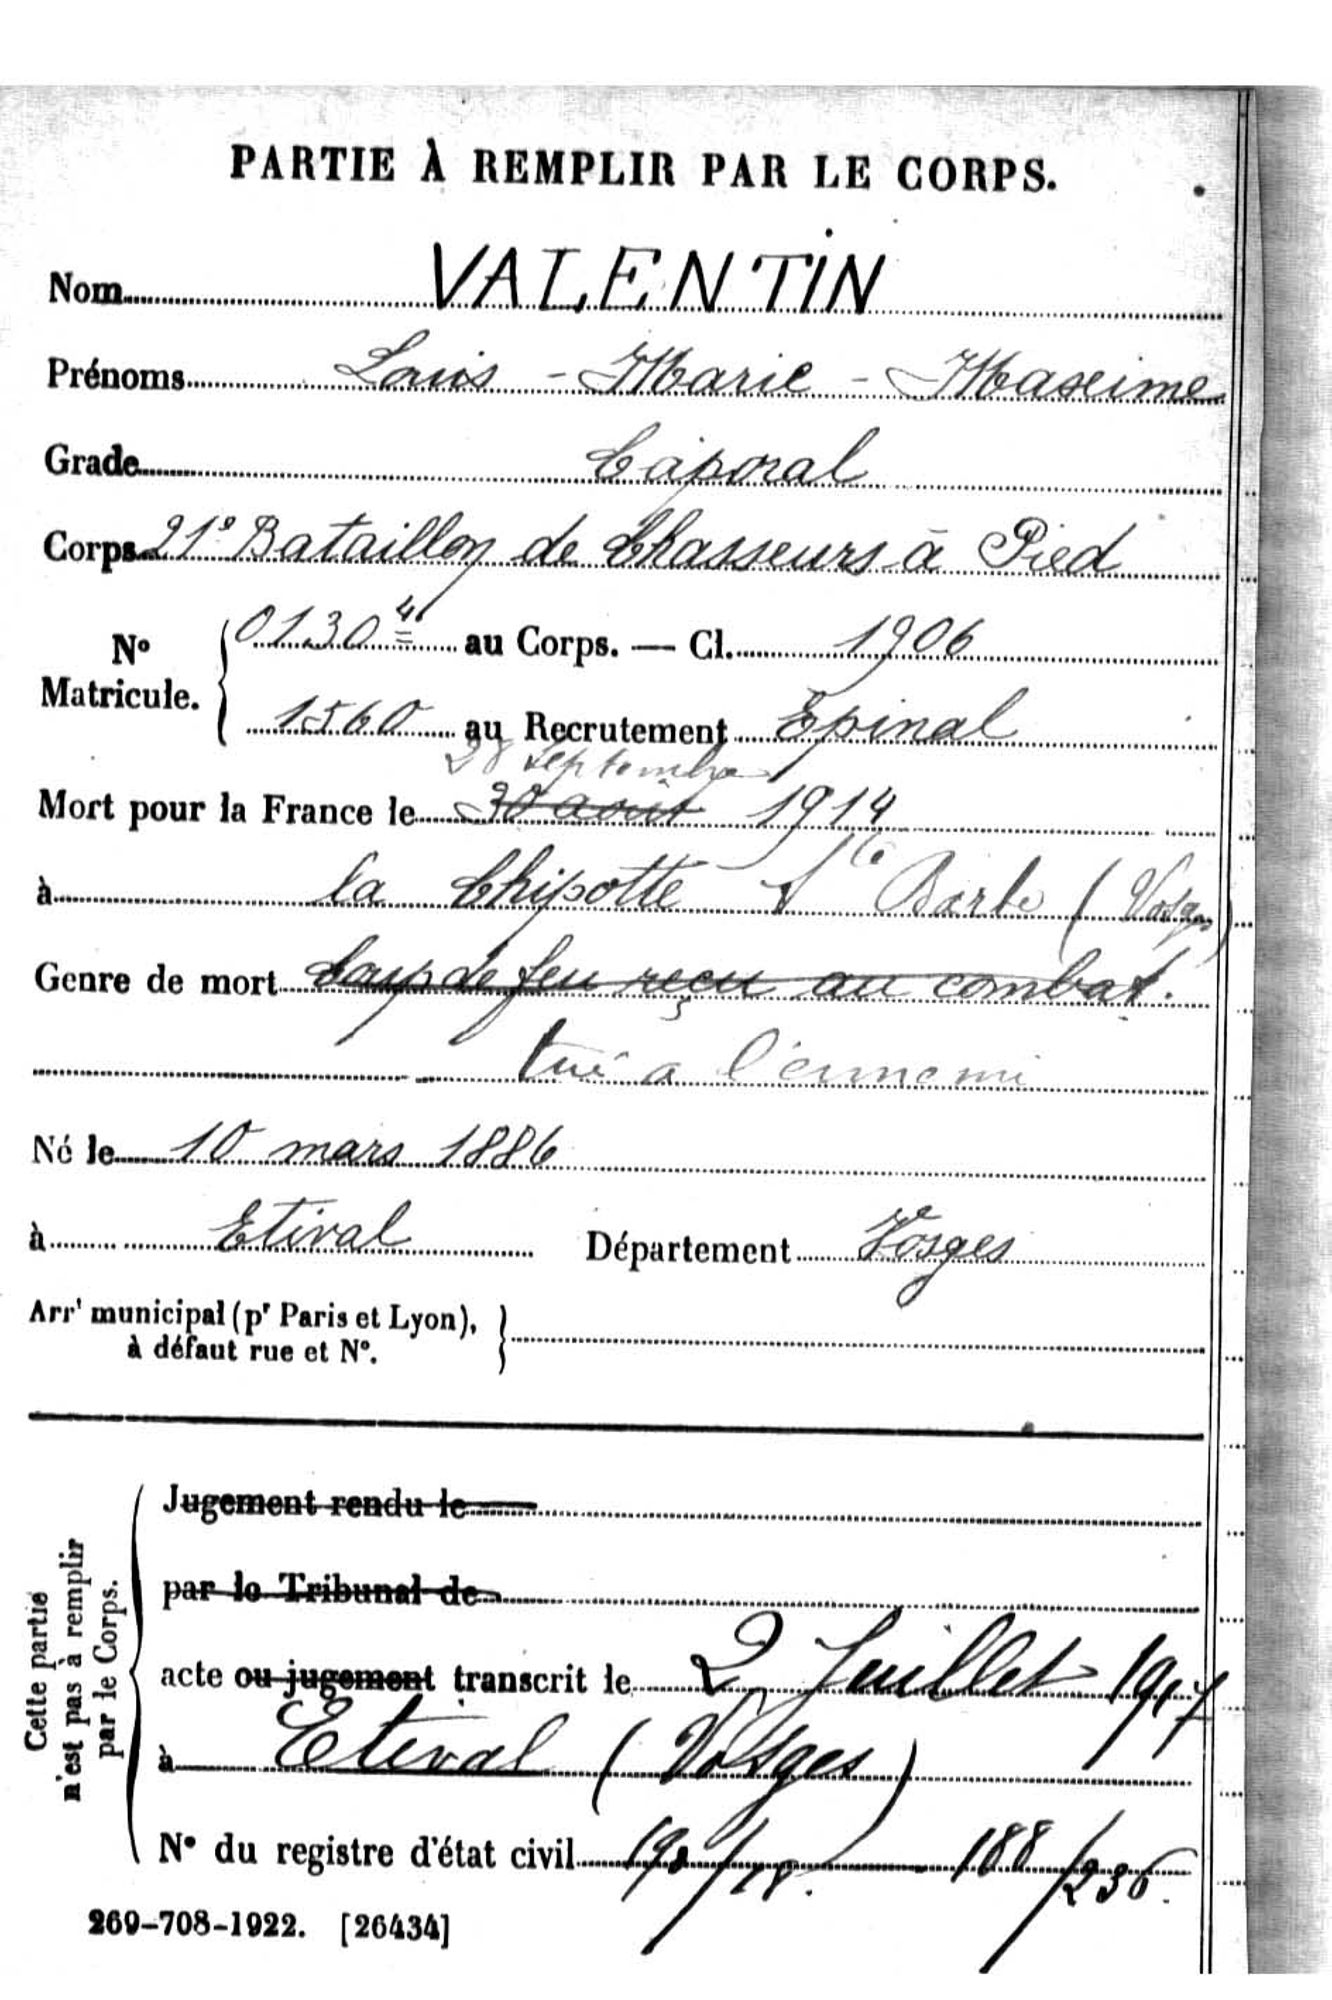 PARTIE À REMPLIR PAR LE CORPS.
Nom VALENTIN
Prénoms Louis - Marie - Maxime
Grade Caporal
Corps 21e Bataillon de Chasseurs à Pied
No Matricule. { 01304 au Corps. — Cl. 1906
1560 au Recrutement Epinal
28 Septembre
Mort pour la France le 30 août 1914
à la Chipotte Ste Barbe (Vosges)
Genre de mort Coup de feu reçu au combat.
tué a l'ennemi
Né le 10 mars 1886
à Etival Département Vosges
Arrt municipal (pr Paris et Lyon), }
à défaut rue et No.
Cette partie
n'est pas à remplir
par le Corps.
Jugement rendu le
par le Tribunal de
acte ou jugement transcrit le 2 Juillet 1917
à Etival (Vosges)
No du registre d'état civil 188/236.
269-708-1922. [26434]